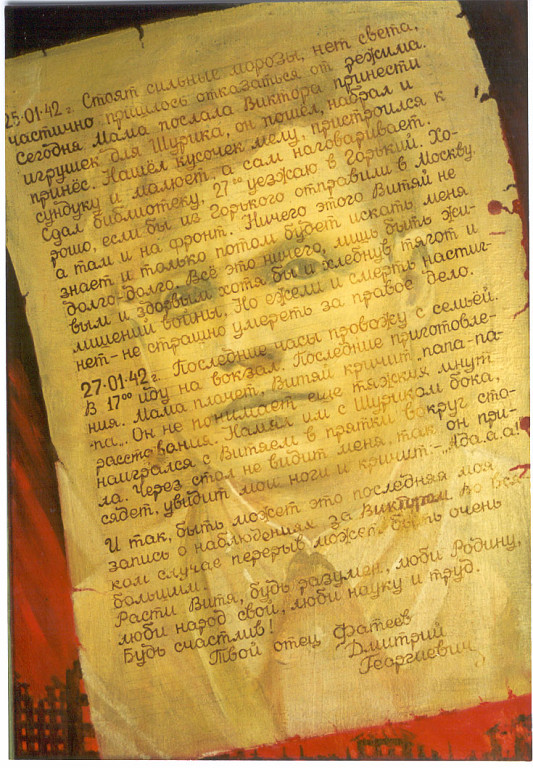 25·01·42 г. Стоят сильные морозы, нет света,
частично пришлось отказаться от режима.
Сегодня Мама послала Виктора принести
игрушек для Шурика, он пошёл, набрал и
принёс. Нашёл кусочек мелу, пристроился к
сундуку и малюет, а сам наговаривает.
Сдал библиотеку, 27⁰⁰ уезжаю в Горький. Хо-
рошо, если бы из Горького отправили в Москву,
а там и на фронт. Ничего этого Витяй не
знает и только потом будет искать меня
долго-долго. Всё это ничего, лишь быть жи-
вым и здоровым хотя бы и хлебнув тягот и
лишений войны. Но ежели и смерть настиг-
нет - не страшно умереть за правое дело.
27·01·42 г. Последние часы провожу с семьёй.
В 17⁰⁰ иду на вокзал. Последние приготовле-
ния. Мама плачет, Витяй кричит „папа-па-
-па„. Он не понимает еще тяжких минут
расставания. Намял им с Шуриком бока,
наигрался с Витяем в прятки вокруг сто-
ла. Через стол не видит меня, так он при-
сядет, увидит мои ноги и кричит:- „Ада.а.а!
И так, быть может это последняя моя
запись о наблюдениях за Виктором. Во вся-
ком случае перерыв может быть очень
большим.
Расти Витя, будь разумен, люби Родину,
люби народ свой, люби науку и труд.
Будь счастлив!
Твой отец Фатеев
Дмитрий
Георгиевич